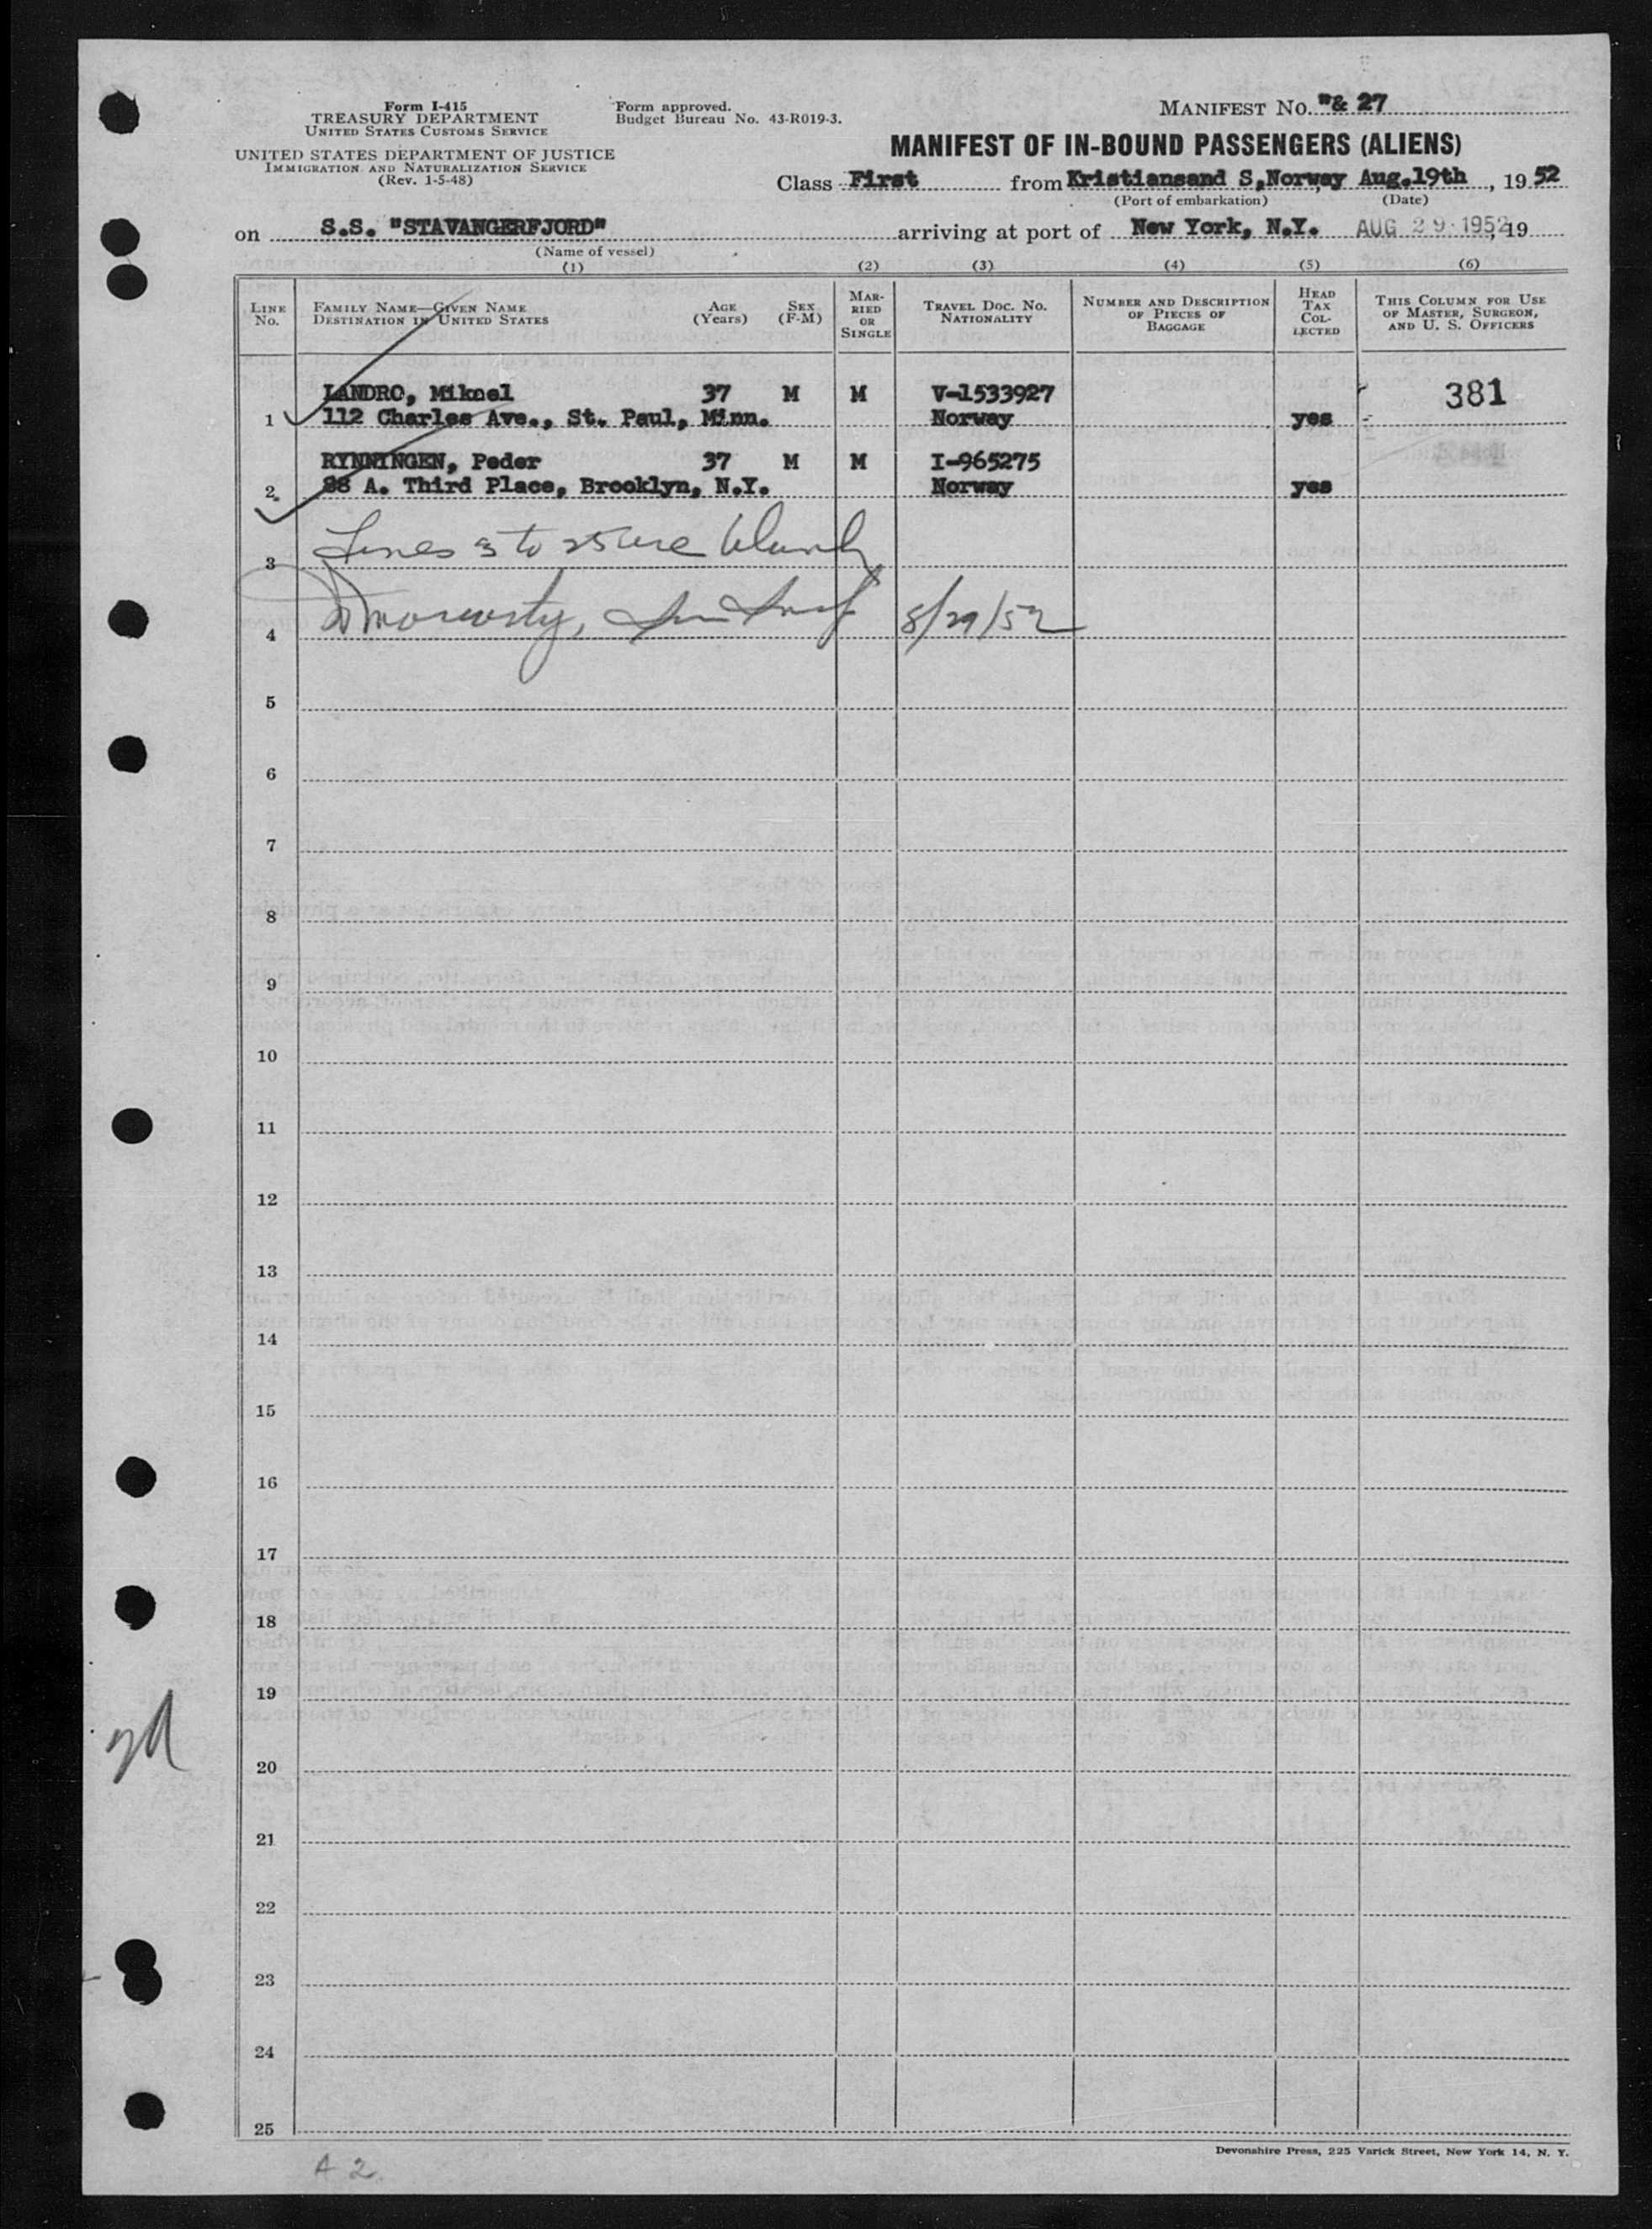 Form I-415
TREASURY DEPARTMENT
UNITED STATES CUSTOMS SERVICE
UNITED STATES DEPARTMENT OF JUSTICE
IMMIGRATION AND NATURALIZATION SERVICE
(Rev. 1-5-48)
Form approved.
Budget Bureau No. 43-R019-3.
MANIFEST NO. "& 27
MANIFEST OF IN-BOUND PASSENGERS (ALIENS)
Class First from Kristiansand S,Norway Aug.19th, 1952
(Port of embarkation) (Date)
on S.S. "STAVANGERFJORD" arriving at port of New York, N.Y. AUG 29 1952, 19
(Name of vessel)
(1) (2) (3) (4) (5) (6)
LINE No.
FAMILY NAME—GIVEN NAME
DESTINATION IN UNITED STATES
AGE (Years)
SEX (F-M)
MARRIED OR SINGLE
TRAVEL DOC. NO. NATIONALITY
NUMBER AND DESCRIPTION OF PIECES OF BAGGAGE
HEAD TAX COLLECTED
THIS COLUMN FOR USE OF MASTER, SURGEON, AND U. S. OFFICERS
LANDRO, Mikael 37 M M V-1533927 381
1 112 Charles Ave., St. Paul, Minn. Norway yes
RYNNINGEN, Peder 37 M M I-965275
2 88 A. Third Place, Brooklyn, N.Y. Norway yes
3 Lines 3 to 25 are blank
4 8/29/52
5
6
7
8
9
10
11
12
13
14
15
16
17
18
19
20
21
22
23
24
25
A 2
Devonshire Press, 225 Varick Street, New York 14, N. Y.